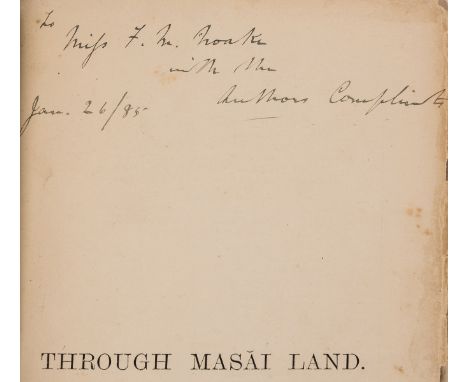 To
Miss F. M. Noake
with the
Authors Compliments
Jan. 26/85
THROUGH MASĀI LAND.